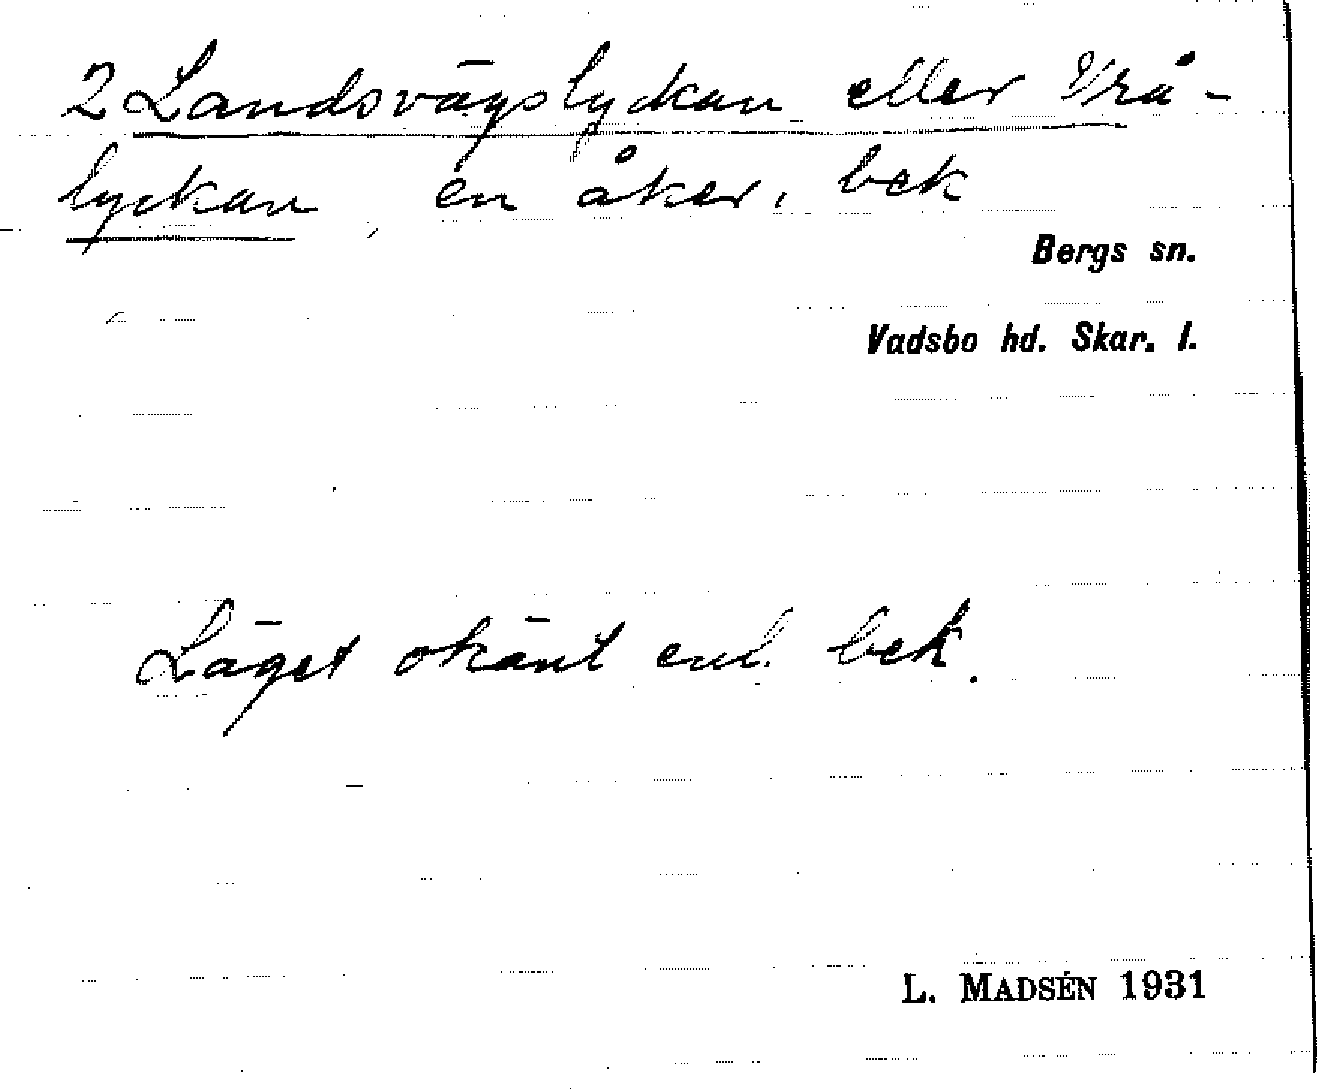 2 Landsvägslyckan eller Vrå-
lyckan, en åker, bek
Bergs sn.
Vadsbo hd. Skar. l.
Läget okänt enl. bek.
L. MADSÉN 1931